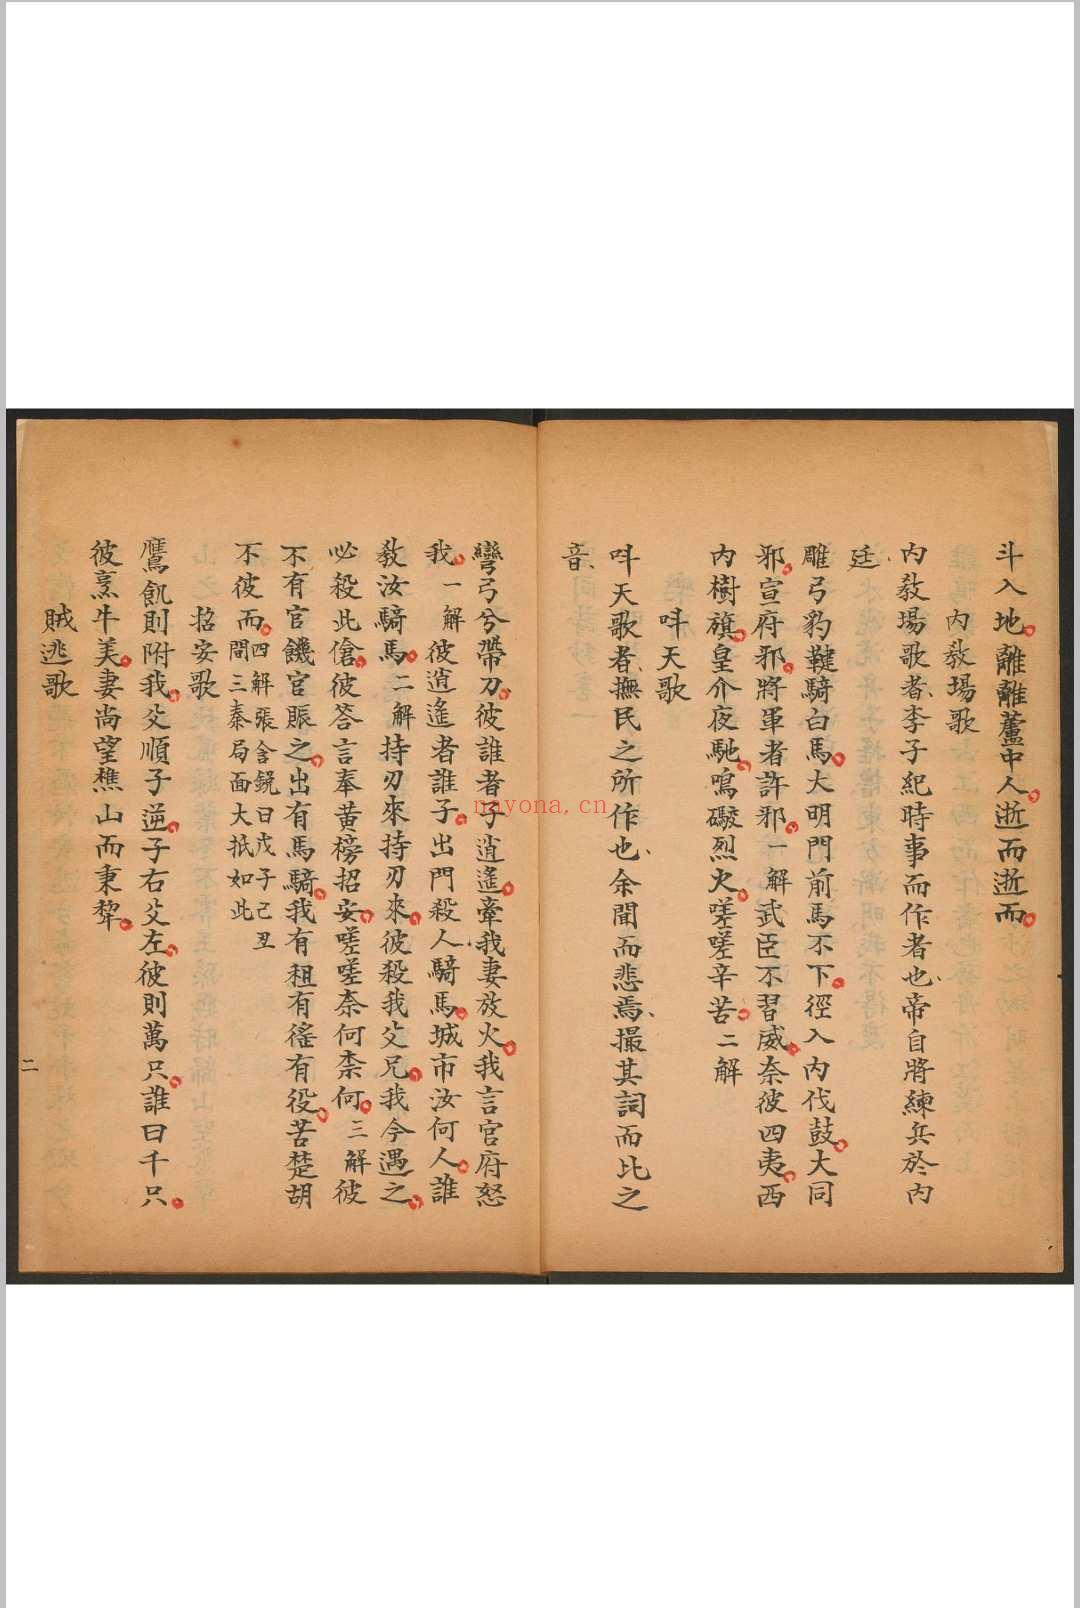 斗入地離離蘆中人逝而逝而
內敎場歌
內敎場歌者李子紀時事而作者也帝自將練兵於內
廷
雕弓豹鞬騎白馬大明門前馬不下徑入內伐鼓大同
邪宣府邪將軍者許邪一解武臣不習威奈彼四夷西
內樹旗皇介夜馳鳴礮烈火嗟嗟辛苦二解
呌天歌
呌天歌者撫民之所作也余聞而悲焉撮其詞而比之
音
彎弓兮帶刀彼誰者子逍遙牽我妻放火我言官府怒
我一解彼逍遙者誰子出門殺人騎馬城市汝何人誰
敎汝騎馬二解持刃來持刃來彼殺我父兄我今遇之
必殺此傖彼答言奉黃榜招安嗟嗟奈何柰何三解彼
不有官饑官賑之出有馬騎我有租有徭有役苦楚胡
不彼而四解張含銳曰戊子己丑
間三秦局面大抵如此
招安歌
鷹飢則附我父順子逆子右父左彼則萬只誰曰千只
彼烹牛美妻尚望樵山而秉犂
賊逃歌
二
nayona.cn